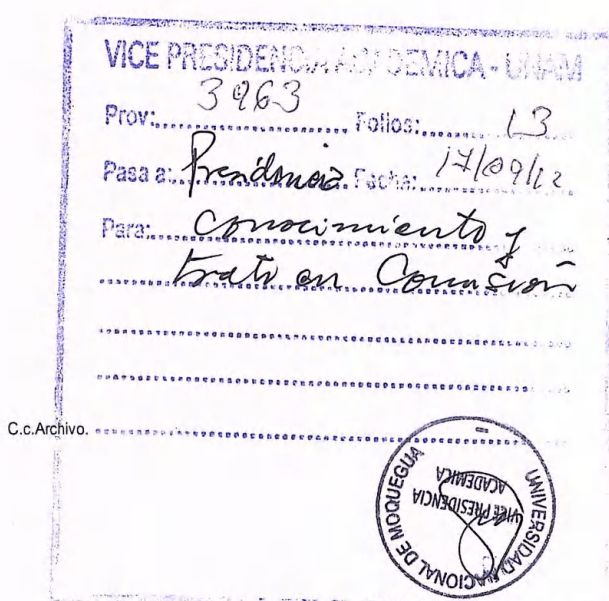 VICE PRESIDENCIA ACADEMICA - UNAM
Prov: 3963 Folios: 13
Pasa a: Presidencia Fecha: 17/09/12
Para: Conocimiento y
trato en Comisión
C.c.Archivo.
UNIVERSIDAD NACIONAL DE MOQUEGUA
VICE PRESIDENCIA
ACADEMICA